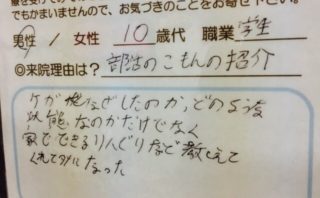 療を受けての
でもかまいませんので、お気づきのことをお寄せ下さい。
男性 / 女性 10 歳代 職業 学生
◎来院理由は? 部活のこもんの紹介
ケガが なぜしたのか、どのような
状態なのかだけでなく
家でできるリハビリなど教えて
くれてタメになった